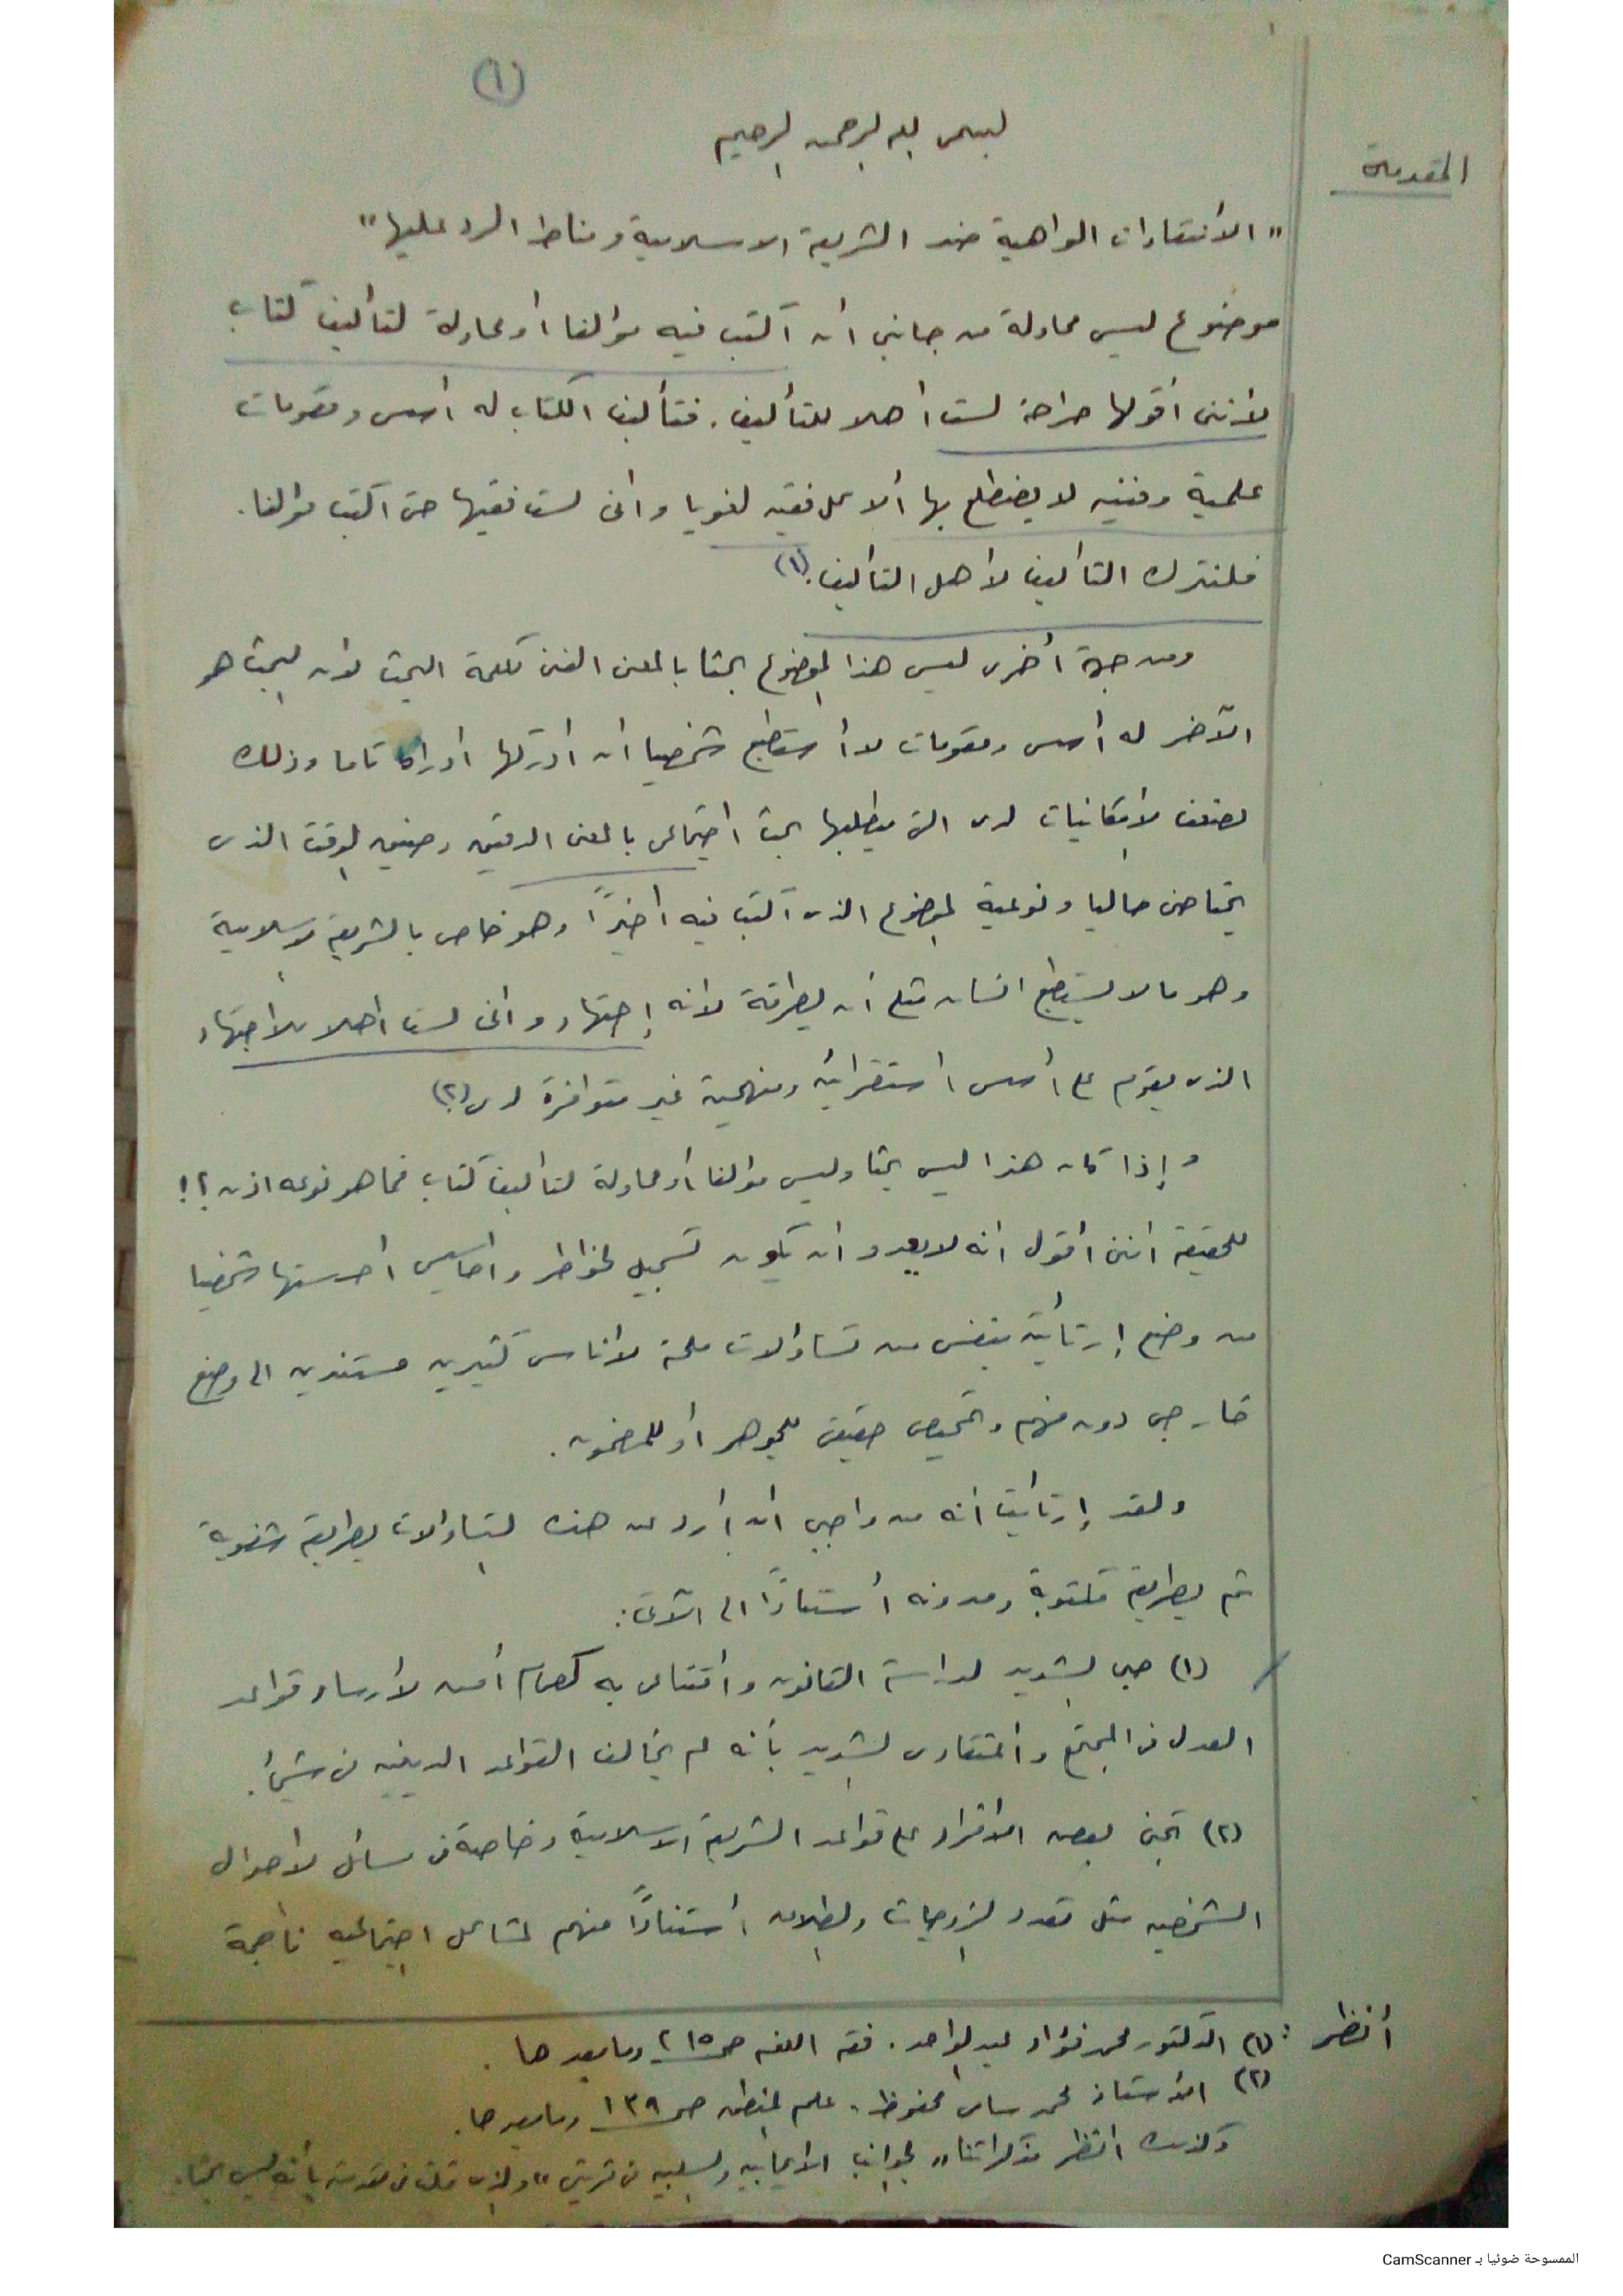 (١)
بسم الله الرحمن الرحيم
المقدمة
"الأنتقادات الواهية ضد الشريعة الاسلامية ومناط الرد عليها"
موضوع ليس محاولة من جانبى أن أكتب فيه مؤلفا أو محاولة لتأليف كتاب
لأننى أقولها صراحة لست أهلا للتأليف. فتأليف الكتاب له أسس ومقومات
علمية وفنيه لا يضطلع بها ألا كل فقيه لغويا وانى لست فقيها حتى أكتب مؤلفا.
فلنترك التأليف لأهل التأليف.(١)
ومن جهة أخرى ليس هذا الموضوع بحثا بالمعنى الفنى لكلمة البحث لأن البحث هو
الآخر له أسس ومقومات لا أستطيع شخصيا ان ادركها ادراكا تاما وذلك
لضعف الأمكانيات لدى التى يتطلبها بحث اجتماعى بالمعنى الدقيق وضيق الوقت الذى
يحتاجنى حاليا ونوعية الموضوع الذى أكتب فيه أخيرًا وهو خاص بالشريعة الأسلامية
وهو ما لا يستطيع انسان مثلى أن يطرقة لأنه إجتهاد وانى لست اهلا للأجتهاد
الذى يقوم على أسس استقرائية ومنهجية غير متوافرة لدى(٢)
وإذا كان هذا ليس بحثا وليس مؤلفا أو محاولة لتأليف كتاب فما هو نوعه اذن ؟!
للحقيقة اننى أقول انه لا يعدو ان يكون تسجيل لخواطر واحاسيس احسستها شخصيا
من وضع إرتأيته بنفسى من تساؤلات ملحة لأناس كثيرين مستندين الى وضع
خارجى دون فهم وتمحيص حقيقى للجوهر أو للمضمون.
ولقد إرتأيت أنه من واجبى ان أرد عن هذه التساؤلات بطريقة شفوية
ثم بطريقة مكتوبة ومدونه أستنادًا الى الآتى:
(١) حبى الشديد لدراسة القانون واقتناعى به كصمام أمن لأرساء قواعد
العدل فى المجتمع وأعتقادى الشديد بأنه لم يخالف القواعد الدينيه فى شيئ.
(٢) تجنى بعض الأفراد على قواعد الشريعة الاسلامية وخاصة فى مسائل الأحوال
الشخصيه مثل تعدد الزوجات والطلاق أستنادًا منهم لمشاكل اجتماعيه ناجمة
أنظر : (١) الدكتور محمد فؤاد عبد الواحد. فقه اللغه ص ٢١٥ وما بعدها.
(٢) الأستاذ محمد سامى محفوظ. علم المنطق ص ١٣٩ وما بعدها.
وكذلك انظر مذكراتنا "الجوانب الأيجابيه والسلبيه فى قريتى" والذى قلت فى مقدمته بأنه ليس بحثا.
الممسوحة ضوئيا بـ CamScanner